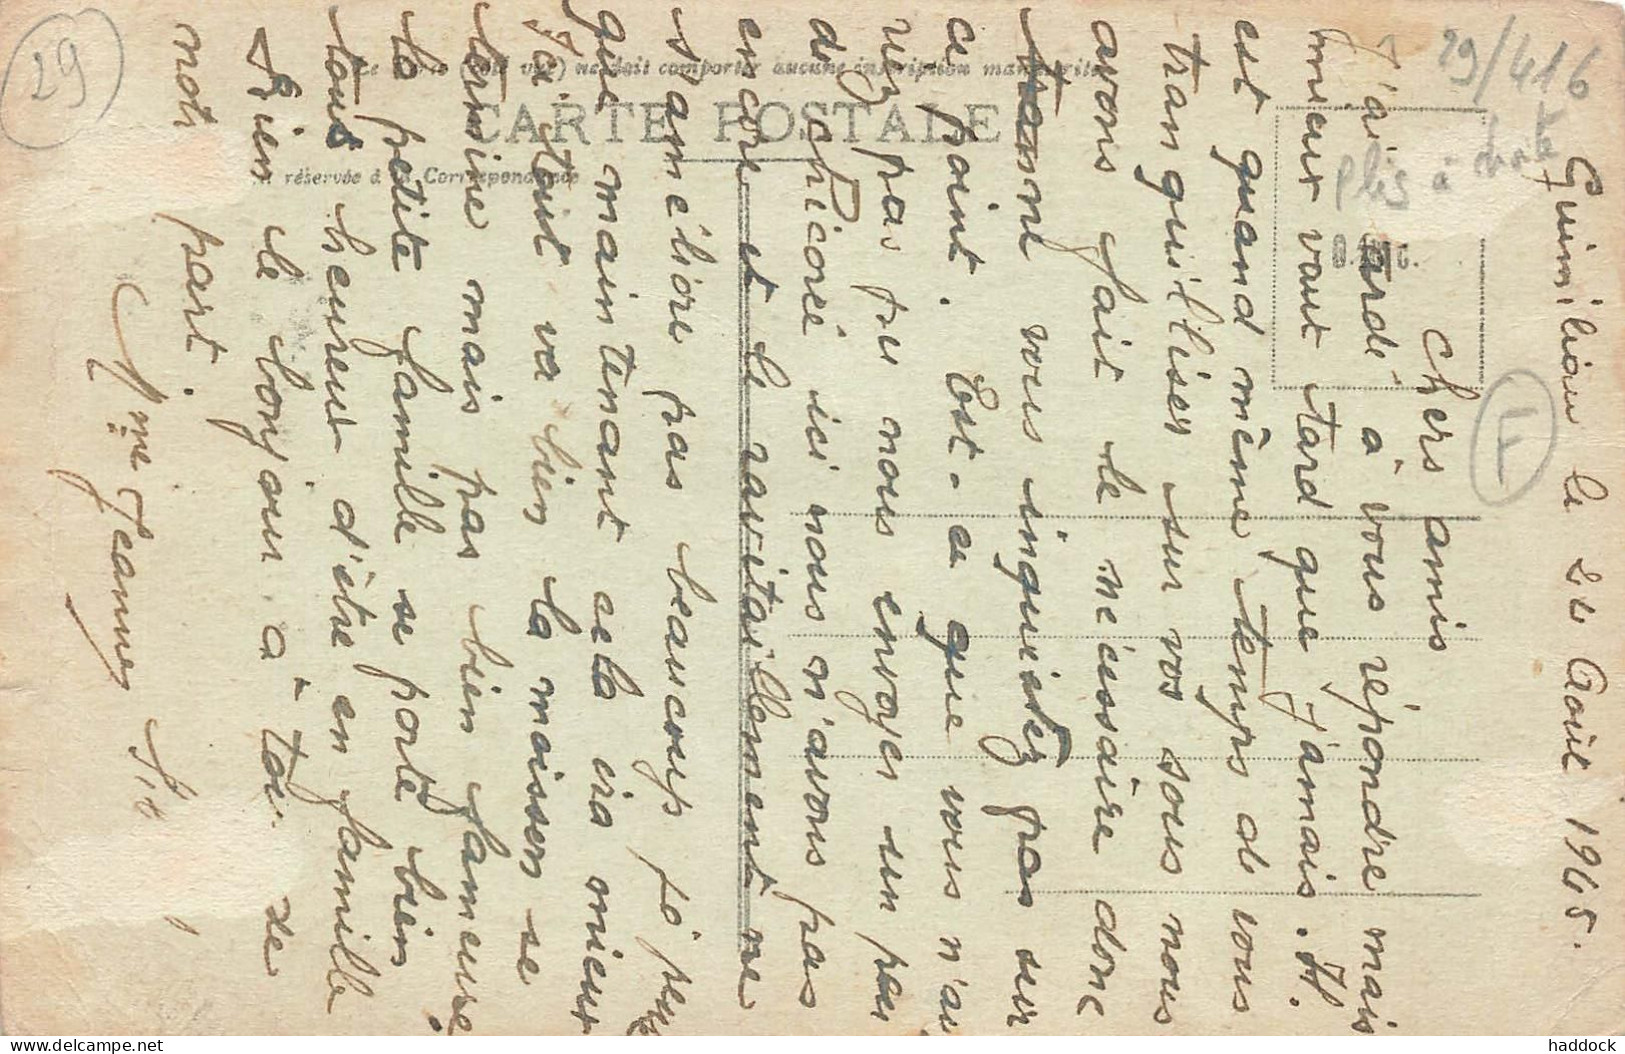 29
29/416
Plis à droite
F
Le Côté (côté vue) ne doit comporter aucune inscription manuscrite
CARTE POSTALE
réservée à la Correspondance
Guimiliau le 24 Août 1945.
Chers amis
J'ai tardé à vous répondre mais
mieux vaut tard que jamais. Il
est quand même temps de vous
tranquilliser sur vos sous nous
avons fait le nécessaire donc
vous inquietez pas sur
ce point. Est-ce que vous n'au
rez pas pu nous envoyer un peu
de chicoré ici nous n'avons pas
encore et le ravitaillement ne
s'améliore pas beaucoup j'espère
que maintenant cela ira mieux
Ici tout va bien la moisson se
termine mais pas bien fameuse.
La petite famille se porte bien
tous heureux d'être en famille
Bien le bonjour à tous de
notre part.
Mme Jeannes